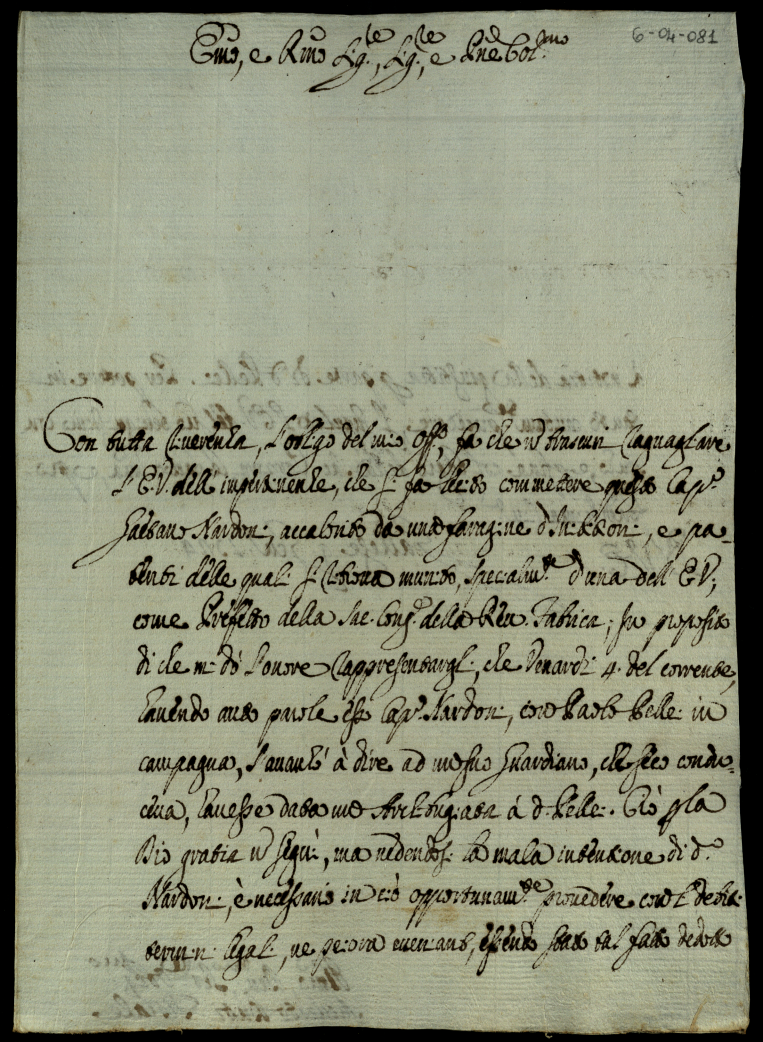 6-04-081
Emo, e Rmo Sig.re, Sig.re, e Pne Col.mo
Con tutta riverenza, l'obligo del mio Off.o, fa che nō trascuri raguagliare
l'E.V. dell'impertinenze, che si fa lecito commettere questo Cap.o
Gaetano Nardoni, accalorito da una faragine d'Inizioni, e pa-
tenti delle quali si ritrova munito, specialm.te d'una dell'E.V.,
come Prefetto della Sac. Cong.e della Rev. Fabrica; In proposito
di che mi dò l'onore rappresentargli, che Venardì 4. del corrente,
havendo auto parole esso Cap.o Nardoni, con Paolo Pelle: in
campagna, s'avanzò à dire ad un suo Guardiano, che seco condu-
ceva, havesse data una Archibugiata à d.o Pelle:. Ciò p la
Dio gratia nō seguì, ma vedendosi la mala intentione di d.o
Nardoni, è necessario in ciò opportunam.te provedere con
termini legali, ne peiora eveniant, essendo stato tal fatto dedotto